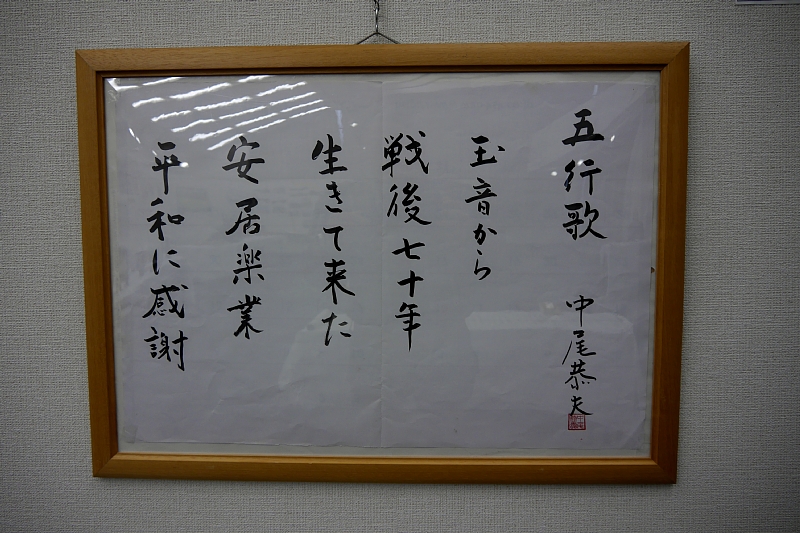 五行歌 中尾恭夫
玉音から
戦後七十年
生きて来た
安居楽業
平和に感謝